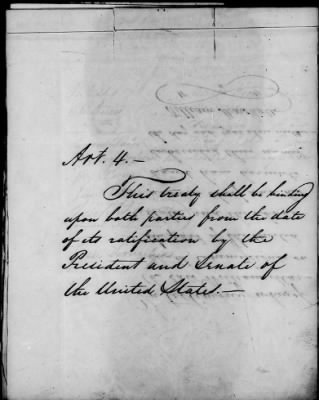 Art. 4.—
This treaty shall be binding
upon both parties from the date
of its ratification by the
President and Senate of
the United States.—